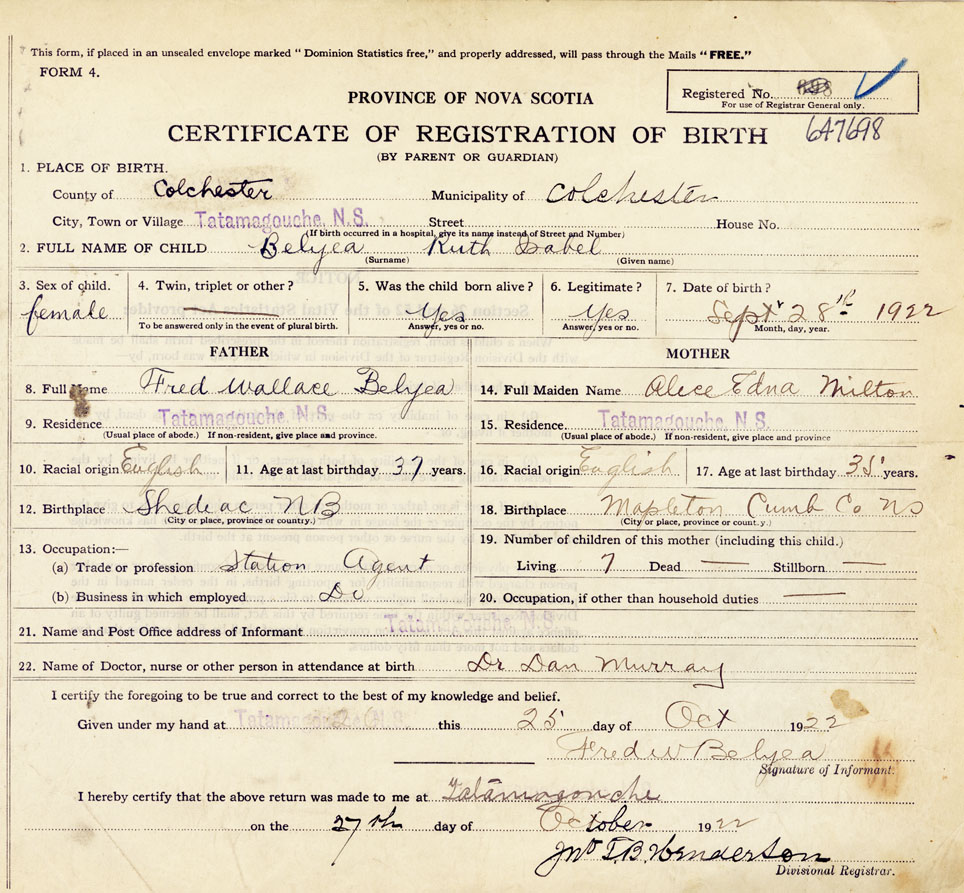 This form, if placed in an unsealed envelope marked "Dominion Statistics free," and properly addressed, will pass through the Mails "FREE."
FORM 4.
Registered No.
For use of Registrar General only.
PROVINCE OF NOVA SCOTIA
CERTIFICATE OF REGISTRATION OF BIRTH 647698
(BY PARENT OR GUARDIAN)
1. PLACE OF BIRTH.
County of Colchester Municipality of Colchester
City, Town or Village Tatamagouche, N.S. Street House No.
(If birth occurred in a hospital, give its name instead of Street and Number)
2. FULL NAME OF CHILD Belyea Ruth Isabel
(Surname) (Given name)
3. Sex of child. 4. Twin, triplet or other? 5. Was the child born alive? 6. Legitimate? 7. Date of birth?
female Yes Yes Sept 28th 1922
To be answered only in the event of plural birth. Answer, yes or no. Answer, yes or no. Month, day, year.
FATHER MOTHER
8. Full Name Fred Wallace Belyea 14. Full Maiden Name Alice Edna Milton
9. Residence Tatamagouche, N.S. 15. Residence. Tatamagouche, N.S.
(Usual place of abode.) If non-resident, give place and province. (Usual place of abode.) If non-resident, give place and province
10. Racial origin English 11. Age at last birthday 37 years. 16. Racial origin English 17. Age at last birthday 35 years.
12. Birthplace Shediac NB 18. Birthplace Mapleton Cumb Co NS
(City or place, province or country.) (City or place, province or county.)
13. Occupation:— 19. Number of children of this mother (including this child.)
(a) Trade or profession Station Agent Living 7 Dead — Stillborn —
(b) Business in which employed Do 20. Occupation, if other than household duties —
21. Name and Post Office address of Informant Tatamagouche, N.S.
22. Name of Doctor, nurse or other person in attendance at birth Dr Dan Murray
I certify the foregoing to be true and correct to the best of my knowledge and belief.
Given under my hand at Tatamagouche, N.S. this 25 day of Oct 1922
Fred W Belyea
Signature of Informant.
I hereby certify that the above return was made to me at Tatamagouche
on the 27th day of October 1922
Jno T.B. Henderson
Divisional Registrar.